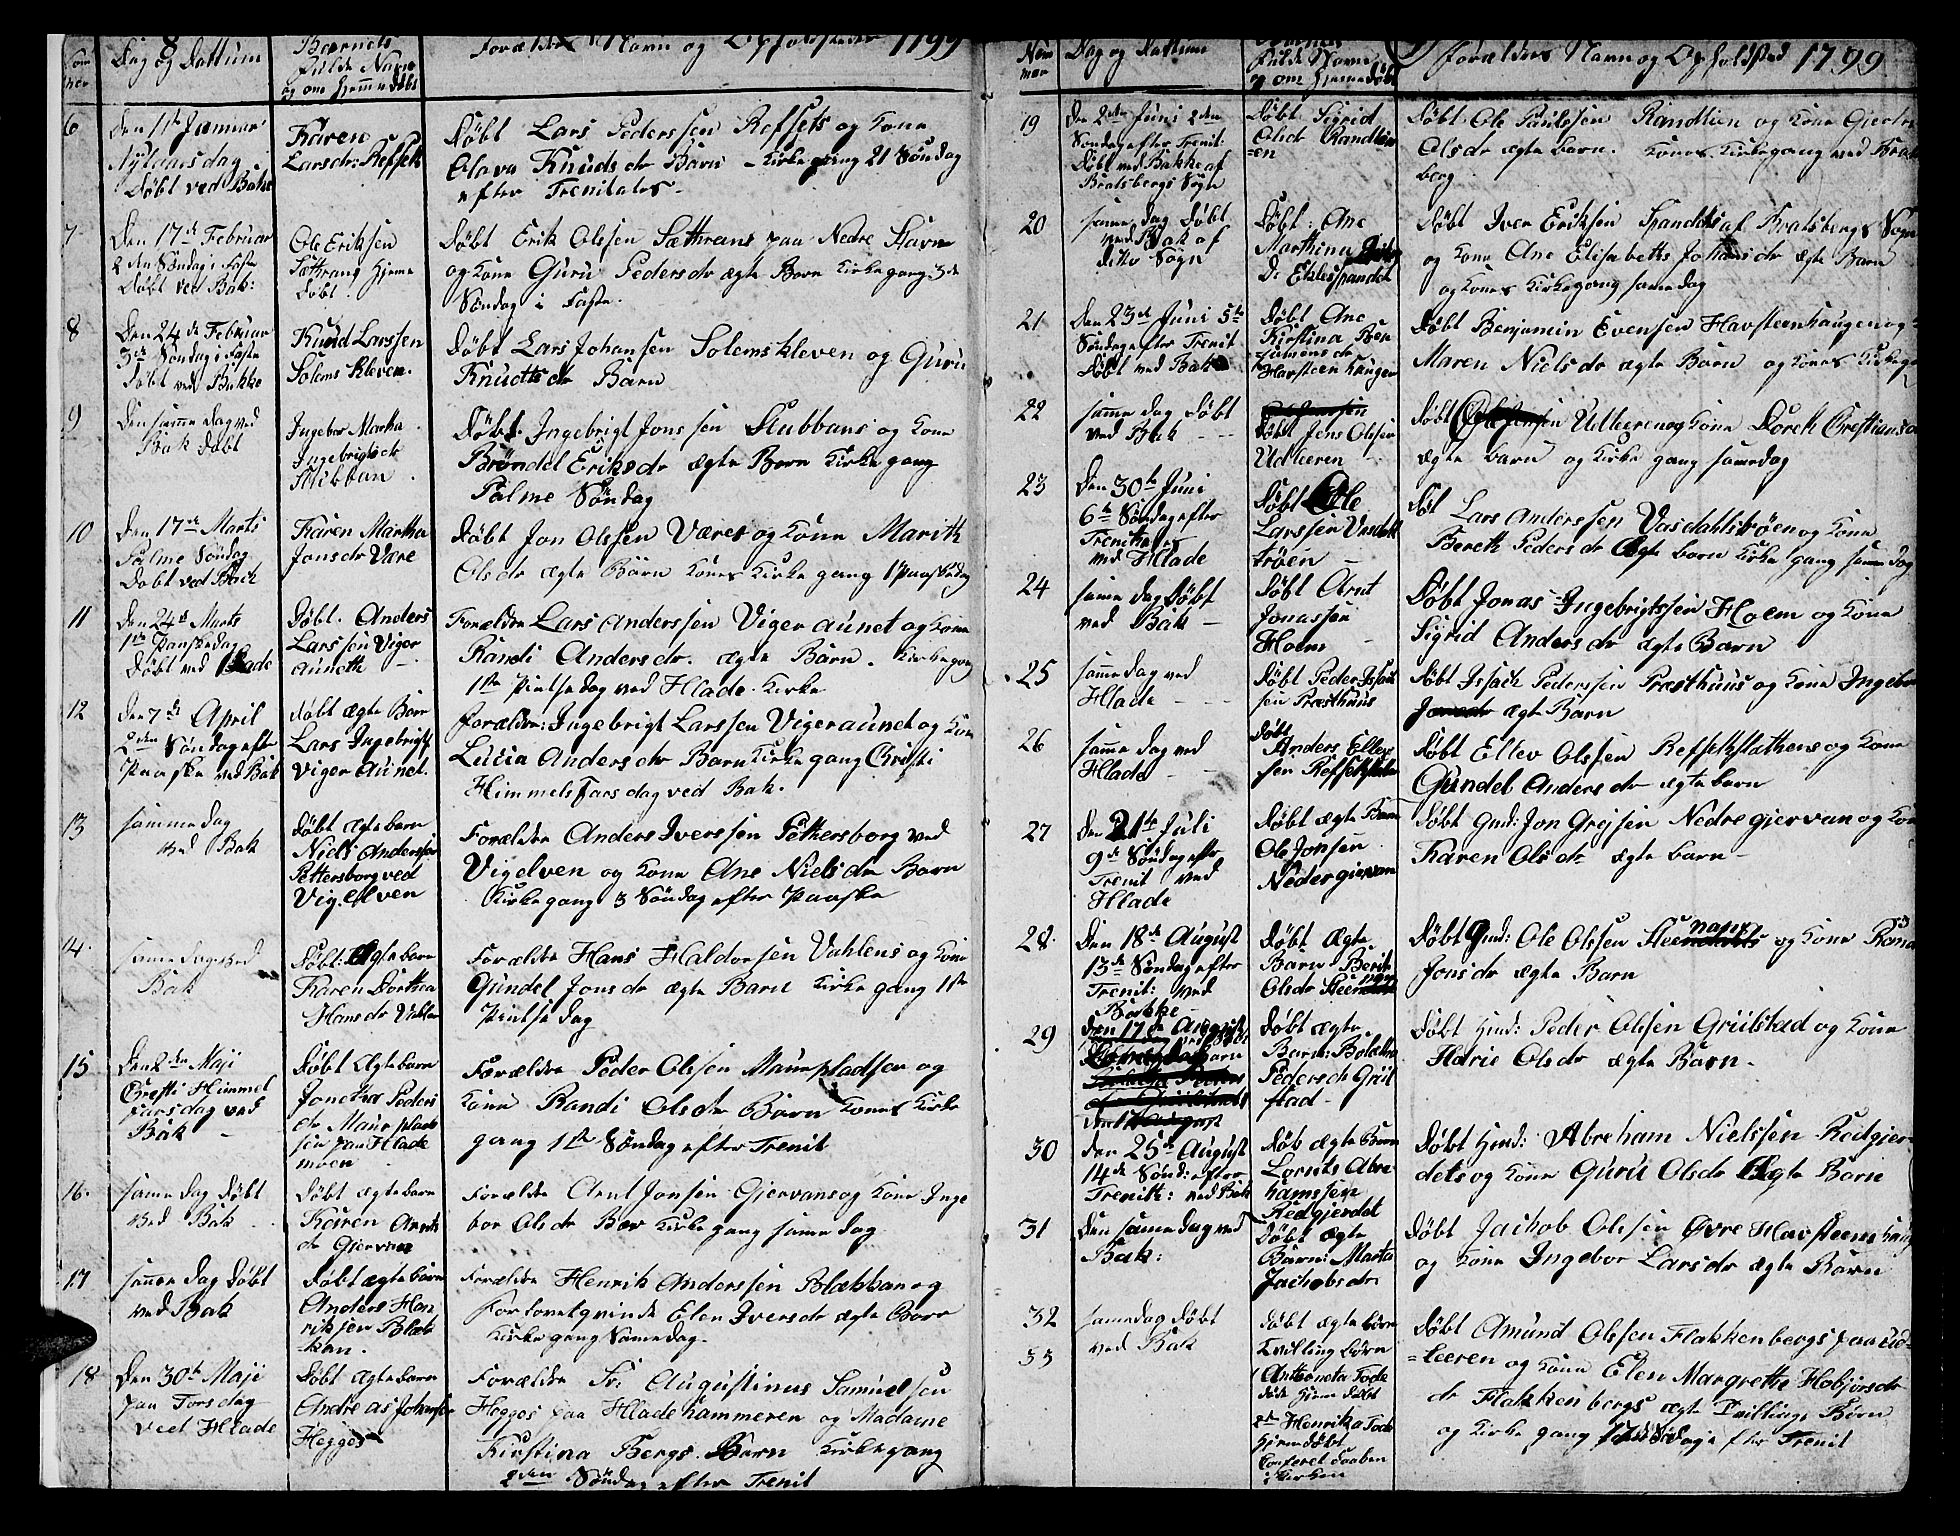 8
Nummer
Dag og Dattum
Barnets
fulde Navn
og om hjemmedøbt
Forældres Navn og Opholdsted 1799
6
Den 1ste Januar
Nytaarsdag
Døbt ved Bak
Karen
Larsdr: Refsets
Døbt Lars Pederssen Refsets og Kone
Olava Knudsdr Barn - Kirkegang 21 Søndag
efter Trenitates
7
Den 17de Februar
2den Søndag i Faste
Døbt ved Bak:
Ole Eriksen
Sæthrang hjeme
døbt.
Døbt Erik Olssen Sæthrans paa Nedre Stavne
og Kone Guru Pedersdr ægte Barn Kirkegang 3de
Søndag i Faste.
8
Den 24de Februar
3de Søndag i Faste
Døbt ved Bakke
Knud Larssen
Solemskleven.
Døbt Lars Johansen Solemskleven og Guru
Knudtsdr Barn
9
Den samme dag ved
Bak døbt
Ingebor Martha
Ingebrigtsdr
Stubban.
Døbt. Ingebrigt Jonssen Stubbans og Kone
Brøndel Eriksdr ægte Barn Kirkegang
Palme Søndag
10
Den 17de Marts
Palme Søndag
Døbt ved Bach
Karen Martha
Jonsdr Være
Døbt Jon Olssen Væres og Kone Marith
Olsdr ægte Barn Kones Kirkegang 1 Paaskedag
11
Den 24de Marts
1ste Paaskedag
Døbt ved Hlade
Døbt. Anders
Larssen Viger
auneth
Forældre Lars Anderssen Vigeraunet og Kone
Randi Andersdr. ægte Barn. Kirkegang
1ste Pintsedag ved Hlade Kirke
12
Den 7de April
2den Søndag efter
Paaske ved Bak
døbt ægte Barn
Lars Ingebrigts
Vigeraunet.
Forældre: Ingebrigt Larssen Vigeraunet og Kone
Lucia Andersdr Barn Kirkegang Christi
Himmelsfarsdag ved Bak.
13
samme dag
ved Bak
døbt ægte barn
Niels Anderssen
Pettersborg ved
Vigelven
Forældre Anders Iverssen Pettersborg ved
Vigelven og Kone Ane Nielsdr Barn
Kirkegang 3 Søndag efter Paaske
14.
samme dag ved
Bak
Døbt: Ægte barn
Karen Dorthea
Hansdr Vahlen
Forældre Hans Haldorsen Vahlens og Kone
Gundel Jonsdr ægte Barn Kirkegang 1ste
Pintsedag
15
Den 2den Maji
Cresti Himmel
farsdag ved
Bak
Døbt ægte barn
Jonetha Peders
dr Maurplads
sen paa Hlade
moen
Forældre Peder Olssen Maurpladsen og
Kone Randi Olsdr Barn Kones Kirke
gang 1ste Søndag efter Trenit
16.
samme dag døbt
ved Bak
Døbt ægte barn
Karen Arnts
dr Gjervan
Forældre Arnt Jonsen Gjervans og Kone Inge
bor Olsdr Bar Kirkegang samme dag
17
samme dag døbt
ved Bak
Døbt ægte barn
Anders Hen
riksen Blæk
kan.
Forældre Henrik Anderssen Blækkan og
Forlovetqvinde Elen Iversdr ægte Barn
Kirkegang Samedag.
18
Den 30te Maji
paa Torsdag
ved Hlade
Døbt ægte barn
Andreas Johanssen
Hegges
Forældre Sr: Augustinus Samuelsen
Hegges paa Hladehammeren og Madame
Kirstina Bergs Barn Kirkegang
2den Søndag efter Trenit
Nummer
Dag og Dattum
Barnets
fulde Navn
og om hjemedøbt
Forældres Navn og Opholdsted 1799
19
Den 2den Juni 2den
Søndag efter Trenit:
Døbt ved Bakke af
Bratsbergs Sogn
Døbt Sigrid
Olsdr Randlien
=en
Døbt Ole Paulssen Randlien og Kone Giertru
Olsdr ægte barn. Kones Kirkegang ved Brats
berg
20
samme dag Døbt
ved Bak af
ditto Sogn
Døbt: Ane
Marthina Ivers
Dr Eklespandet
Døbt Iver Eriksen Spandets af Bratsbergs Sogn
og Kone Ane Elisabeths Johansdr ægte Barn
og Kones Kirkegang samedag
21
Den 23de Juni 5te
Søndag efter Trenit
Døbt ved Bak
Døbt Ane
Kirstina Ben
jamensdr
Havsteenhaugen
Døbt Benjamin Evensen Havsteenhaugen og
Maren Nielsdr ægte Barn og Kones Kirkegan
22
samme dag døbt
ved Bak
døbt Jens Olssen
Udleeren
døbt Ole Jenssen Udleeren og Kone Doreth Crestiansd
ægte barn og Kirkegang samedag
23
Den 30te Juni
6te Søndag efter
Trenitates
ved Hlade
Døbt Ole
Larssen Vasdahl
trøen
Døbt Lars Anderssen Vasdahlstrøen og Kone
Bereth Pedersdr Ægte barn Kirkegang samedag
24
samme dag døbt
ved Bak
Døbt Arnt
Jonassen
Holm
Døbt Jonas Ingebrigtssen Holm og Kone
Sigrid Andersdr ægte Barn
25
samme dag ved
Hlade
Døbt Peder Issach
sen Præsthuus
Døbt Issach Pederssen Præsthuus og Kone Ingebor
Jonsdr ægte Barn
26
samme dag ved
Hlade
Døbt
Anders Ellev
sen Refsetsplathen
Døbt Ellev Olssen Refsetsplathens og Kone
Gundel Andersdr ægte barn
27
Den 21te Juli
9de Søndag efter
Trenit ved
Hlade
Døbt ægte Barn
Ole Jonsen
Nedregiervan
Døbt Gud: Jon Grejsen Nedregiervan og Kone
Karen Olsdr ægte barn
28.
Den 18de August
13de Søndag efter
Trenit: ved
Bakke
Døbt ægte
Barn Berit
Olsdr Steen
Døbt Gud: Ole Olssen Steen og Kone Rana
Jonsdr ægte Barn
29
den 17de August
døbt ægte
Barn: Bolethe
Pedersdr Grül
stad
Døbt Gud: Peder Olssen Grülstad og Kone
Marie Olsdr ægte Barn.
30
den 25de August
14de Sønd: efter
Trenit: ved Bak
døbt ægte Barn
Lornts Abra
hamssen
Rødgjerdet
Døbt Gud: Abraham Nielssen Rødgjer
dets og Kone Guru Olsdr Ægte Barn
31
den samme dag ved
Bak:
Døbt ægte
Barn: Marta
Jachobsdr
Døbt Jachob Olssen Øvre Havsteens haug
og Kone Ingebor Larsdr ægte Barn
32
33
samedag døbt
ved Bak
Døbt ægte børn
tvilling børn
Antoneta Tode
hjemedøbt
2de Henrika Tode
hjemedøbt
Confereret daaben
i Kirken
Døbt Amund Olssen Flakkenbergs paa ud=
=leeren og Kone Elen Margrethe Hobjørsdr
Flakkenbergs ægte Tvillings Børn
og Kirkegang efter Trenit